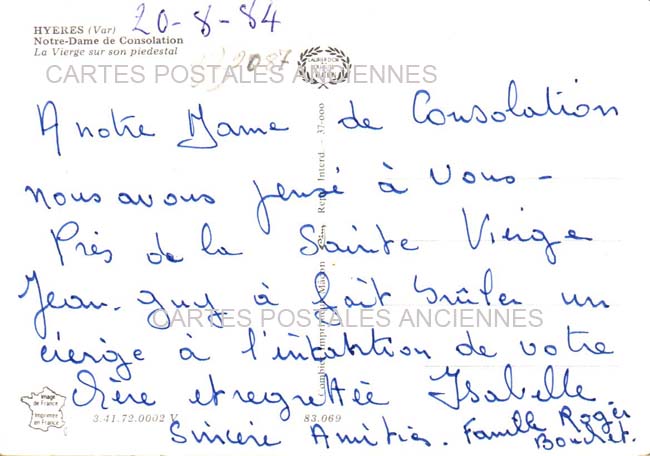 HYERES (Var) 20-8-84
Notre-Dame de Consolation
La Vierge sur son piedestal
2087
CARTES POSTALES ANCIENNES
A notre Dame de Consolation
nous avons pensé à Vous -
Près de la Sainte Vierge
Jean-guy à fait brûler un
CARTES POSTALES ANCIENNES
cierge à l'intention de votre
chère et regrettée Ysabelle.
image de France
Imprimée en France
3.41.72.0002 V 83.069
Sincère Amitiés. Famille Roger
Bouret.
Repr. Interd. - 37-000